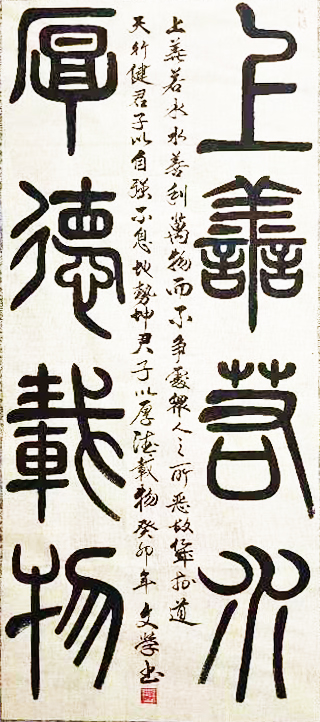 上善若水
上善若水水善利萬物而不争處衆人之所惡故幾於道
天行健君子以自强不息地勢坤君子以厚德載物癸卯年文學书
厚德載物